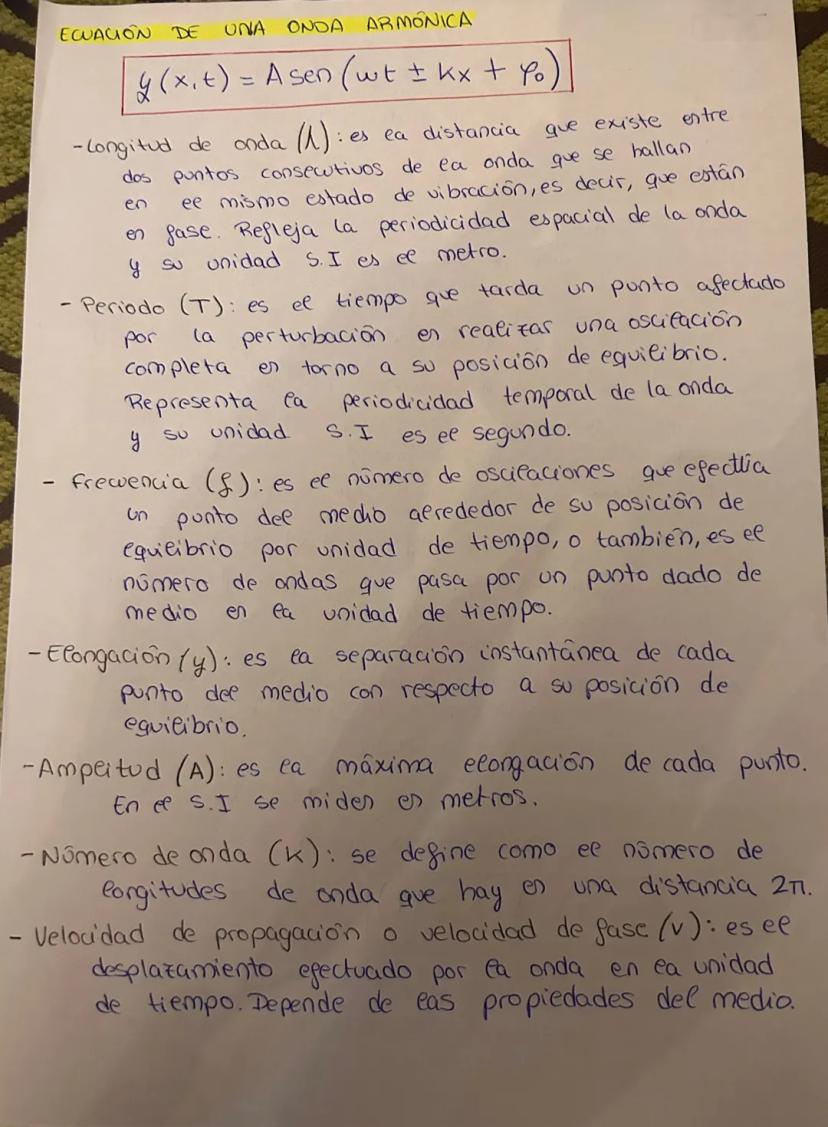 ECUACIÓN DE UNA ONDA ARMÓNICA
y(x,t) = A sen (ωt ± kx + φ₀)
- Longitud de onda (λ): es la distancia que existe entre
dos puntos consecutivos de la onda que se hallan
en el mismo estado de vibración, es decir, que están
en fase. Refleja la periodicidad espacial de la onda
y su unidad S.I es el metro.
- Periodo (T): es el tiempo que tarda un punto afectado
por la perturbación en realizar una oscilación
completa en torno a su posición de equilibrio.
Representa la periodicidad temporal de la onda
y su unidad S.I es el segundo.
- Frecuencia (f): es el número de oscilaciones que efectúa
un punto del medio alrededor de su posición de
equilibrio por unidad de tiempo, o también, es el
número de ondas que pasa por un punto dado de
medio en la unidad de tiempo.
- Elongación (y): es la separación instantánea de cada
punto del medio con respecto a su posición de
equilibrio.
- Amplitud (A): es la máxima elongación de cada punto.
En el S.I se miden en metros.
- Número de onda (k): se define como el número de
longitudes de onda que hay en una distancia 2π.
- Velocidad de propagación o velocidad de fase (v): es el
desplazamiento efectuado por la onda en la unidad
de tiempo. Depende de las propiedades del medio.